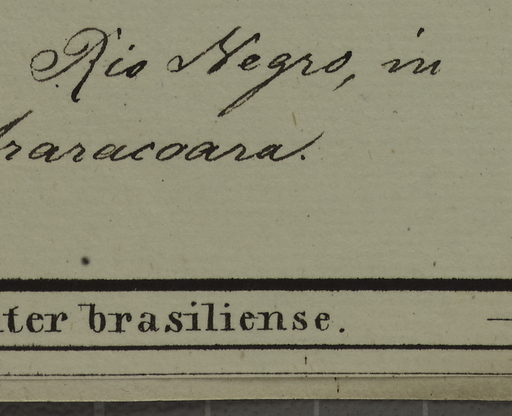 Rio Negro, in
raracoara.
ter brasiliense.